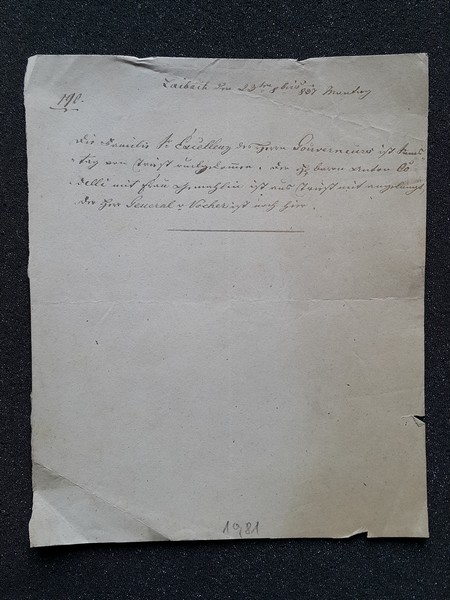 198.
Laibach den 23ten 8ber 807 Montag
Die Familie Sr Excellenz des Herrn Gouverneurs ist Sams
tag von Triest zurückgekommen. Der H. baron Anton Co
delli mit Frau Gemahlin ist aus Triest mit angelangt
Der Herr General v Nocher ist noch hier
1981